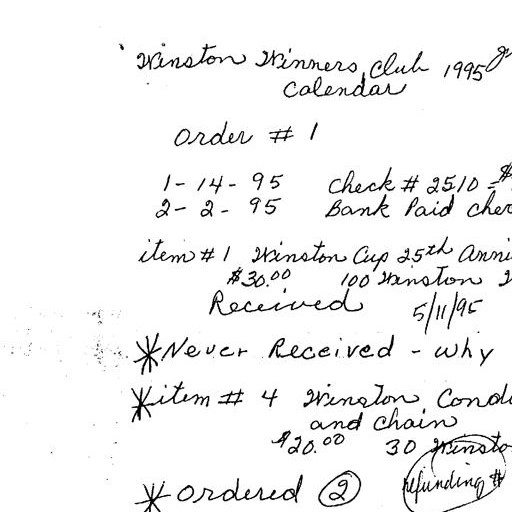 Winston Winners Club 1995
Calendar
Order # 1
1-14-95 Check # 2510 = $
2-2-95 Bank Paid
item # 1 Winston Cup 25th
$30.00 100 Winston
Received 5/11/95
*Never Received - why
*item # 4 Winston
and chain
$20.00 30
refunding #
*ordered 2